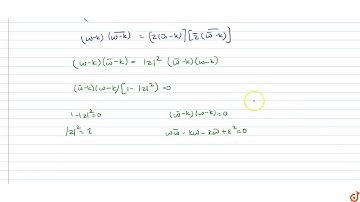 (ω-k) (\overline{ω-k}) = [z(ω̄-k)] [\overline{z(ω̄-k)}]
(ω-k) (ω̄-k) = |z|² (ω̄-k)(ω-k)
(ω̄-k)(ω-k) [1-|z|²] = 0
1-|z|² = 0 (ω̄-k)(ω-k) = 0
|z|² = 1 ωω̄ - kω - kω̄ + k² = 0